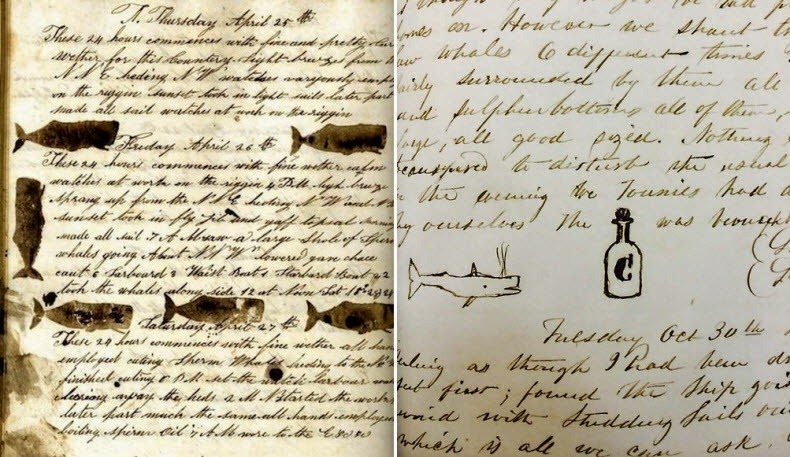 N. Thursday April 25th
These 24 hours commences with fine and pretty
wether for this Countery Light breezes from
N N E heding N W watches variously
on the riggin sunset took in light sails later part
made all sail watches at work on the riggin
Friday April 26th
These 24 hours commences with fine wether calm
watches at work on the riggin 4 P.M. light breeze
sprang up from the N N E heding N W
sunset took in fly jib and gaff topsail
made all sail 7 A M saw a large Shole of Sperm
whales going lowered gave chace
Larboard & Waist Boats Starbord Boat 2
took the whales along side 12 at Noon Lat 18° 29
Saturday April 27th
These 24 hours commences with fine wether all hands
employed cuting Sperm Whales heding to the N
finished cuting 6 P.M. set the watch larboard
clearing away the heds 2 A M Started the works
later part much the same all hands employed
boiling Sperm Oil 7 A M wore to the
on. However we
whales 6 different times
surrounded by them all
and Sulpher bottoms all of them,
large, all good sized. Nothing
to disturb the usual
in the evening the Tounies had
by ourselves The was brought
C
Tuesday Oct 30th
as though I had been
first; found the Ship
with Studding Sails
which is all we can ask.